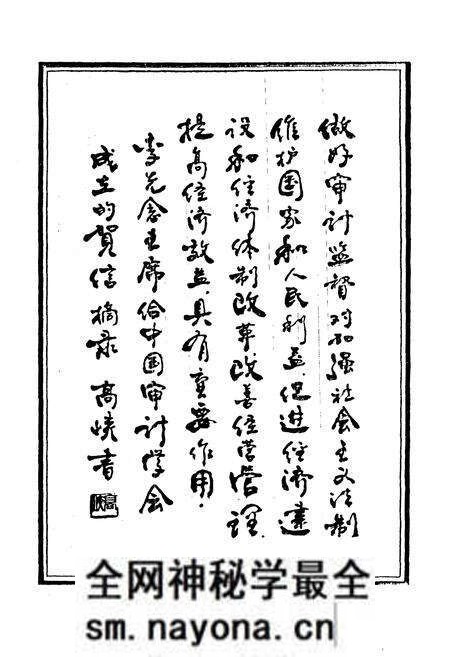 做好审计监督对加强社会主义法制
维护国家和人民利益、促进经济建
设和经济体制改革、改善经营管理、
提高经济效益、具有重要作用。
李先念主席给中国审计学会
成立的贺信摘录 高 书
全网神秘学最全
sm.nayona.cn